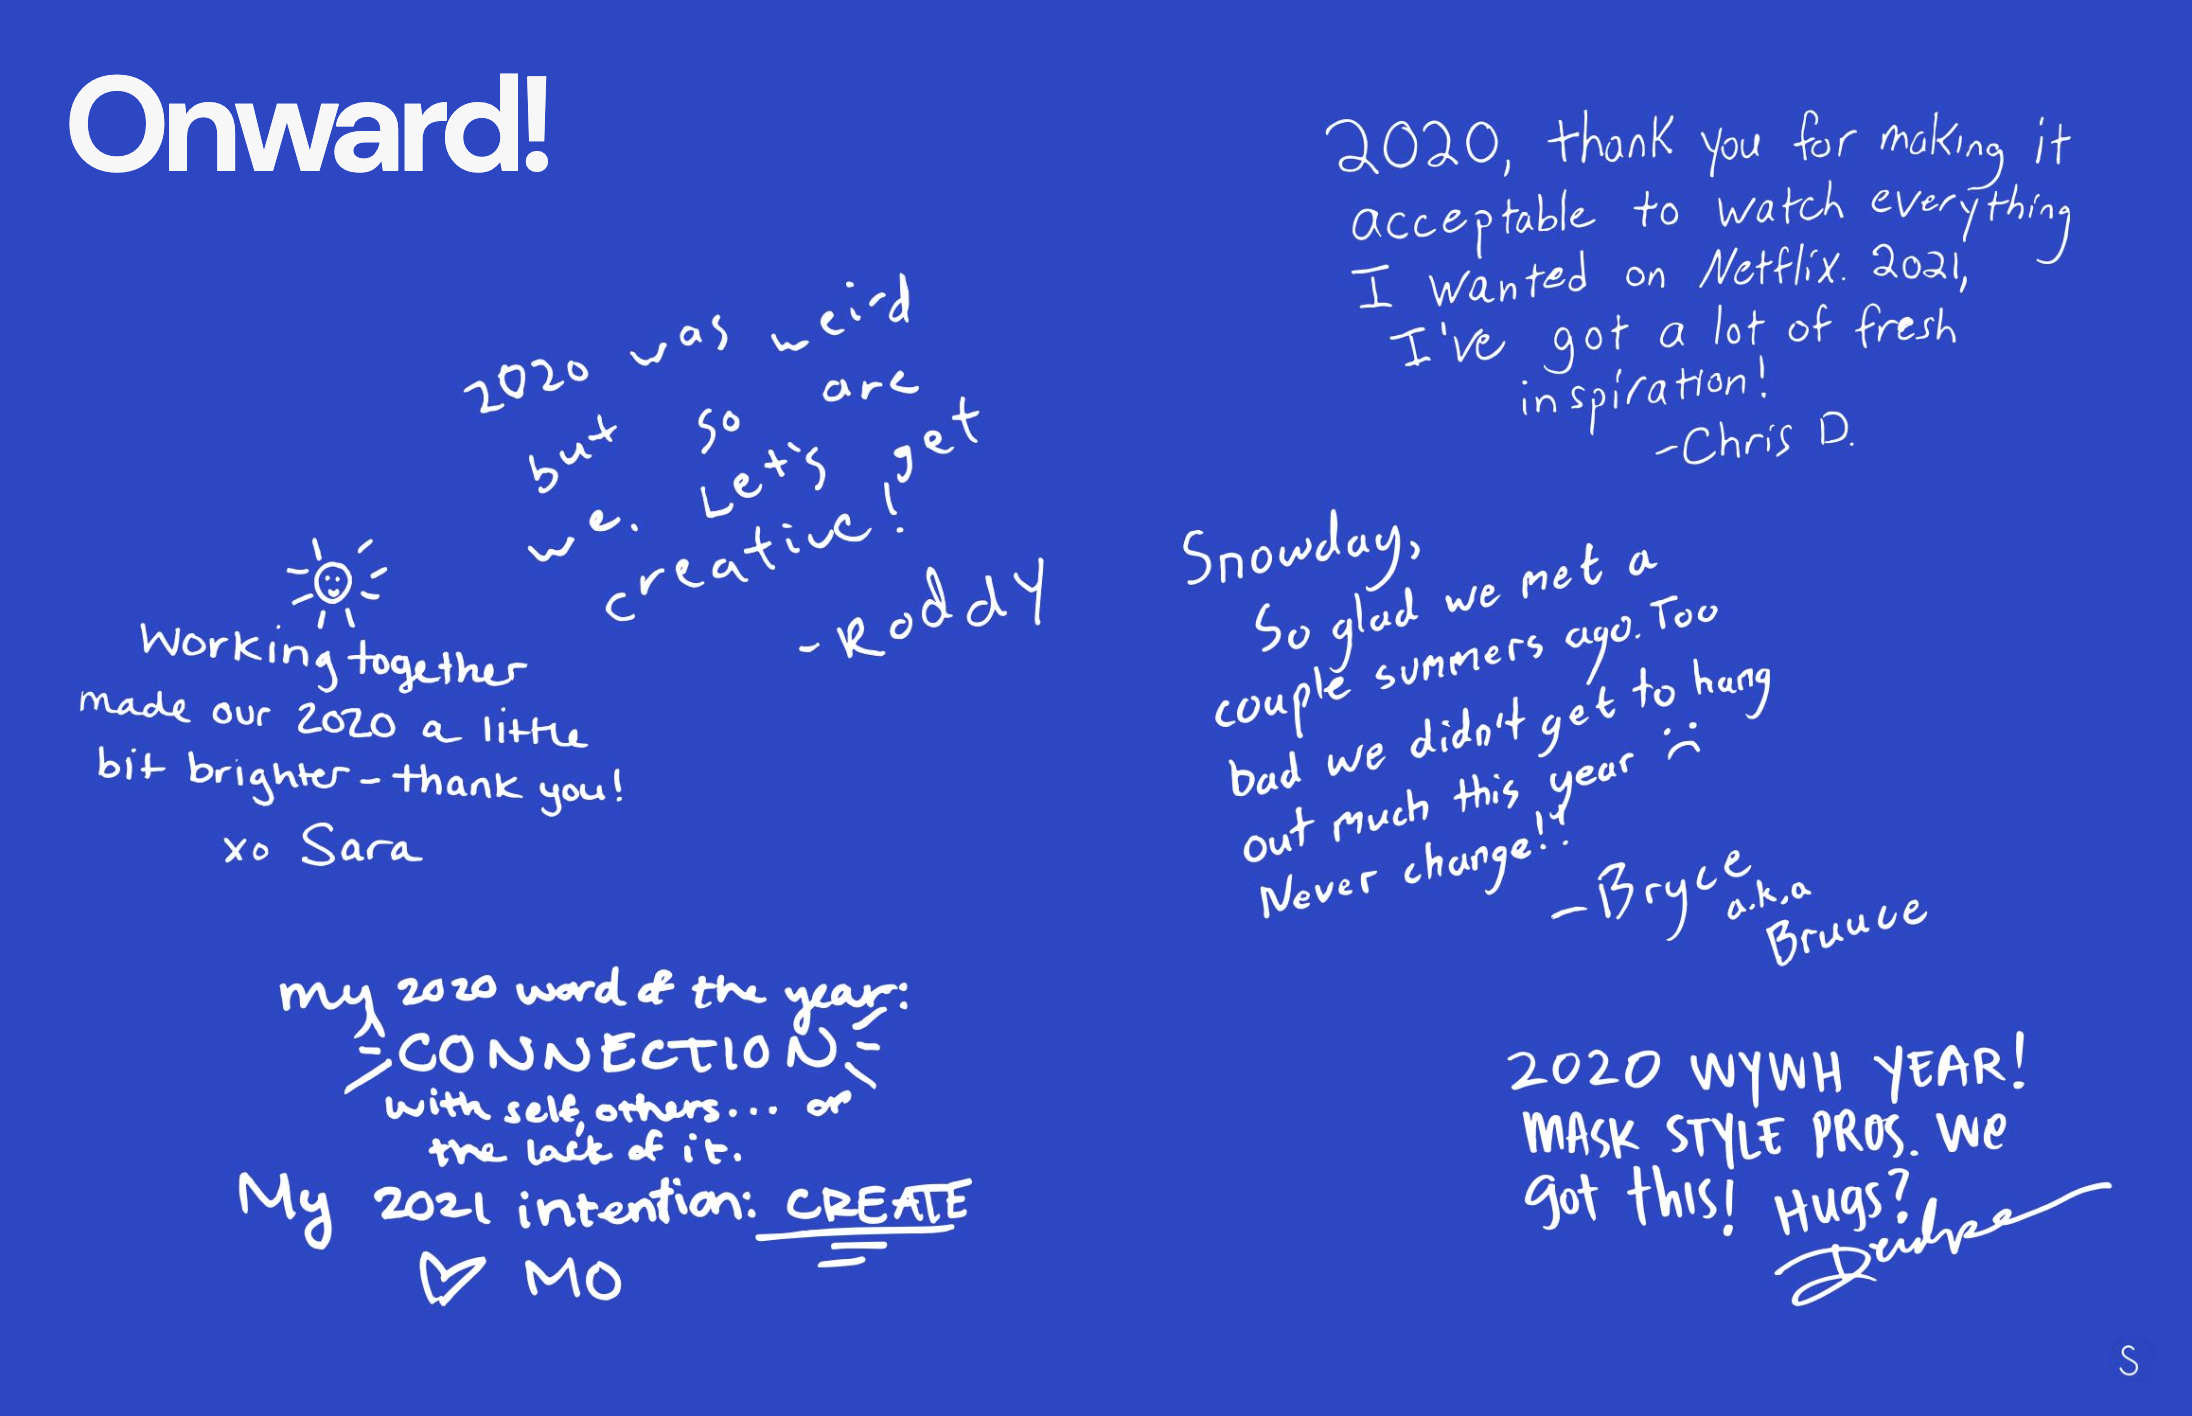 Onward!
2020 was weird
but so are
we. Let's get
creative!
-Roddy
Working together
made our 2020 a little
bit brighter - thank you!
xo Sara
my 2020 word of the year:
CONNECTION
with self, others... or
the lack of it.
My 2021 intention: CREATE
MO
2020, thank you for making it
acceptable to watch everything
I wanted on Netflix. 2021,
I've got a lot of fresh
inspiration!
-Chris D.
Snowday,
So glad we met a
couple summers ago. Too
bad we didn't get to hang
out much this year :(
Never change!!
-Bryce
a.k.a
Bruuce
2020 WYWH YEAR!
MASK STYLE PROS. We
got this! Hugs?
S